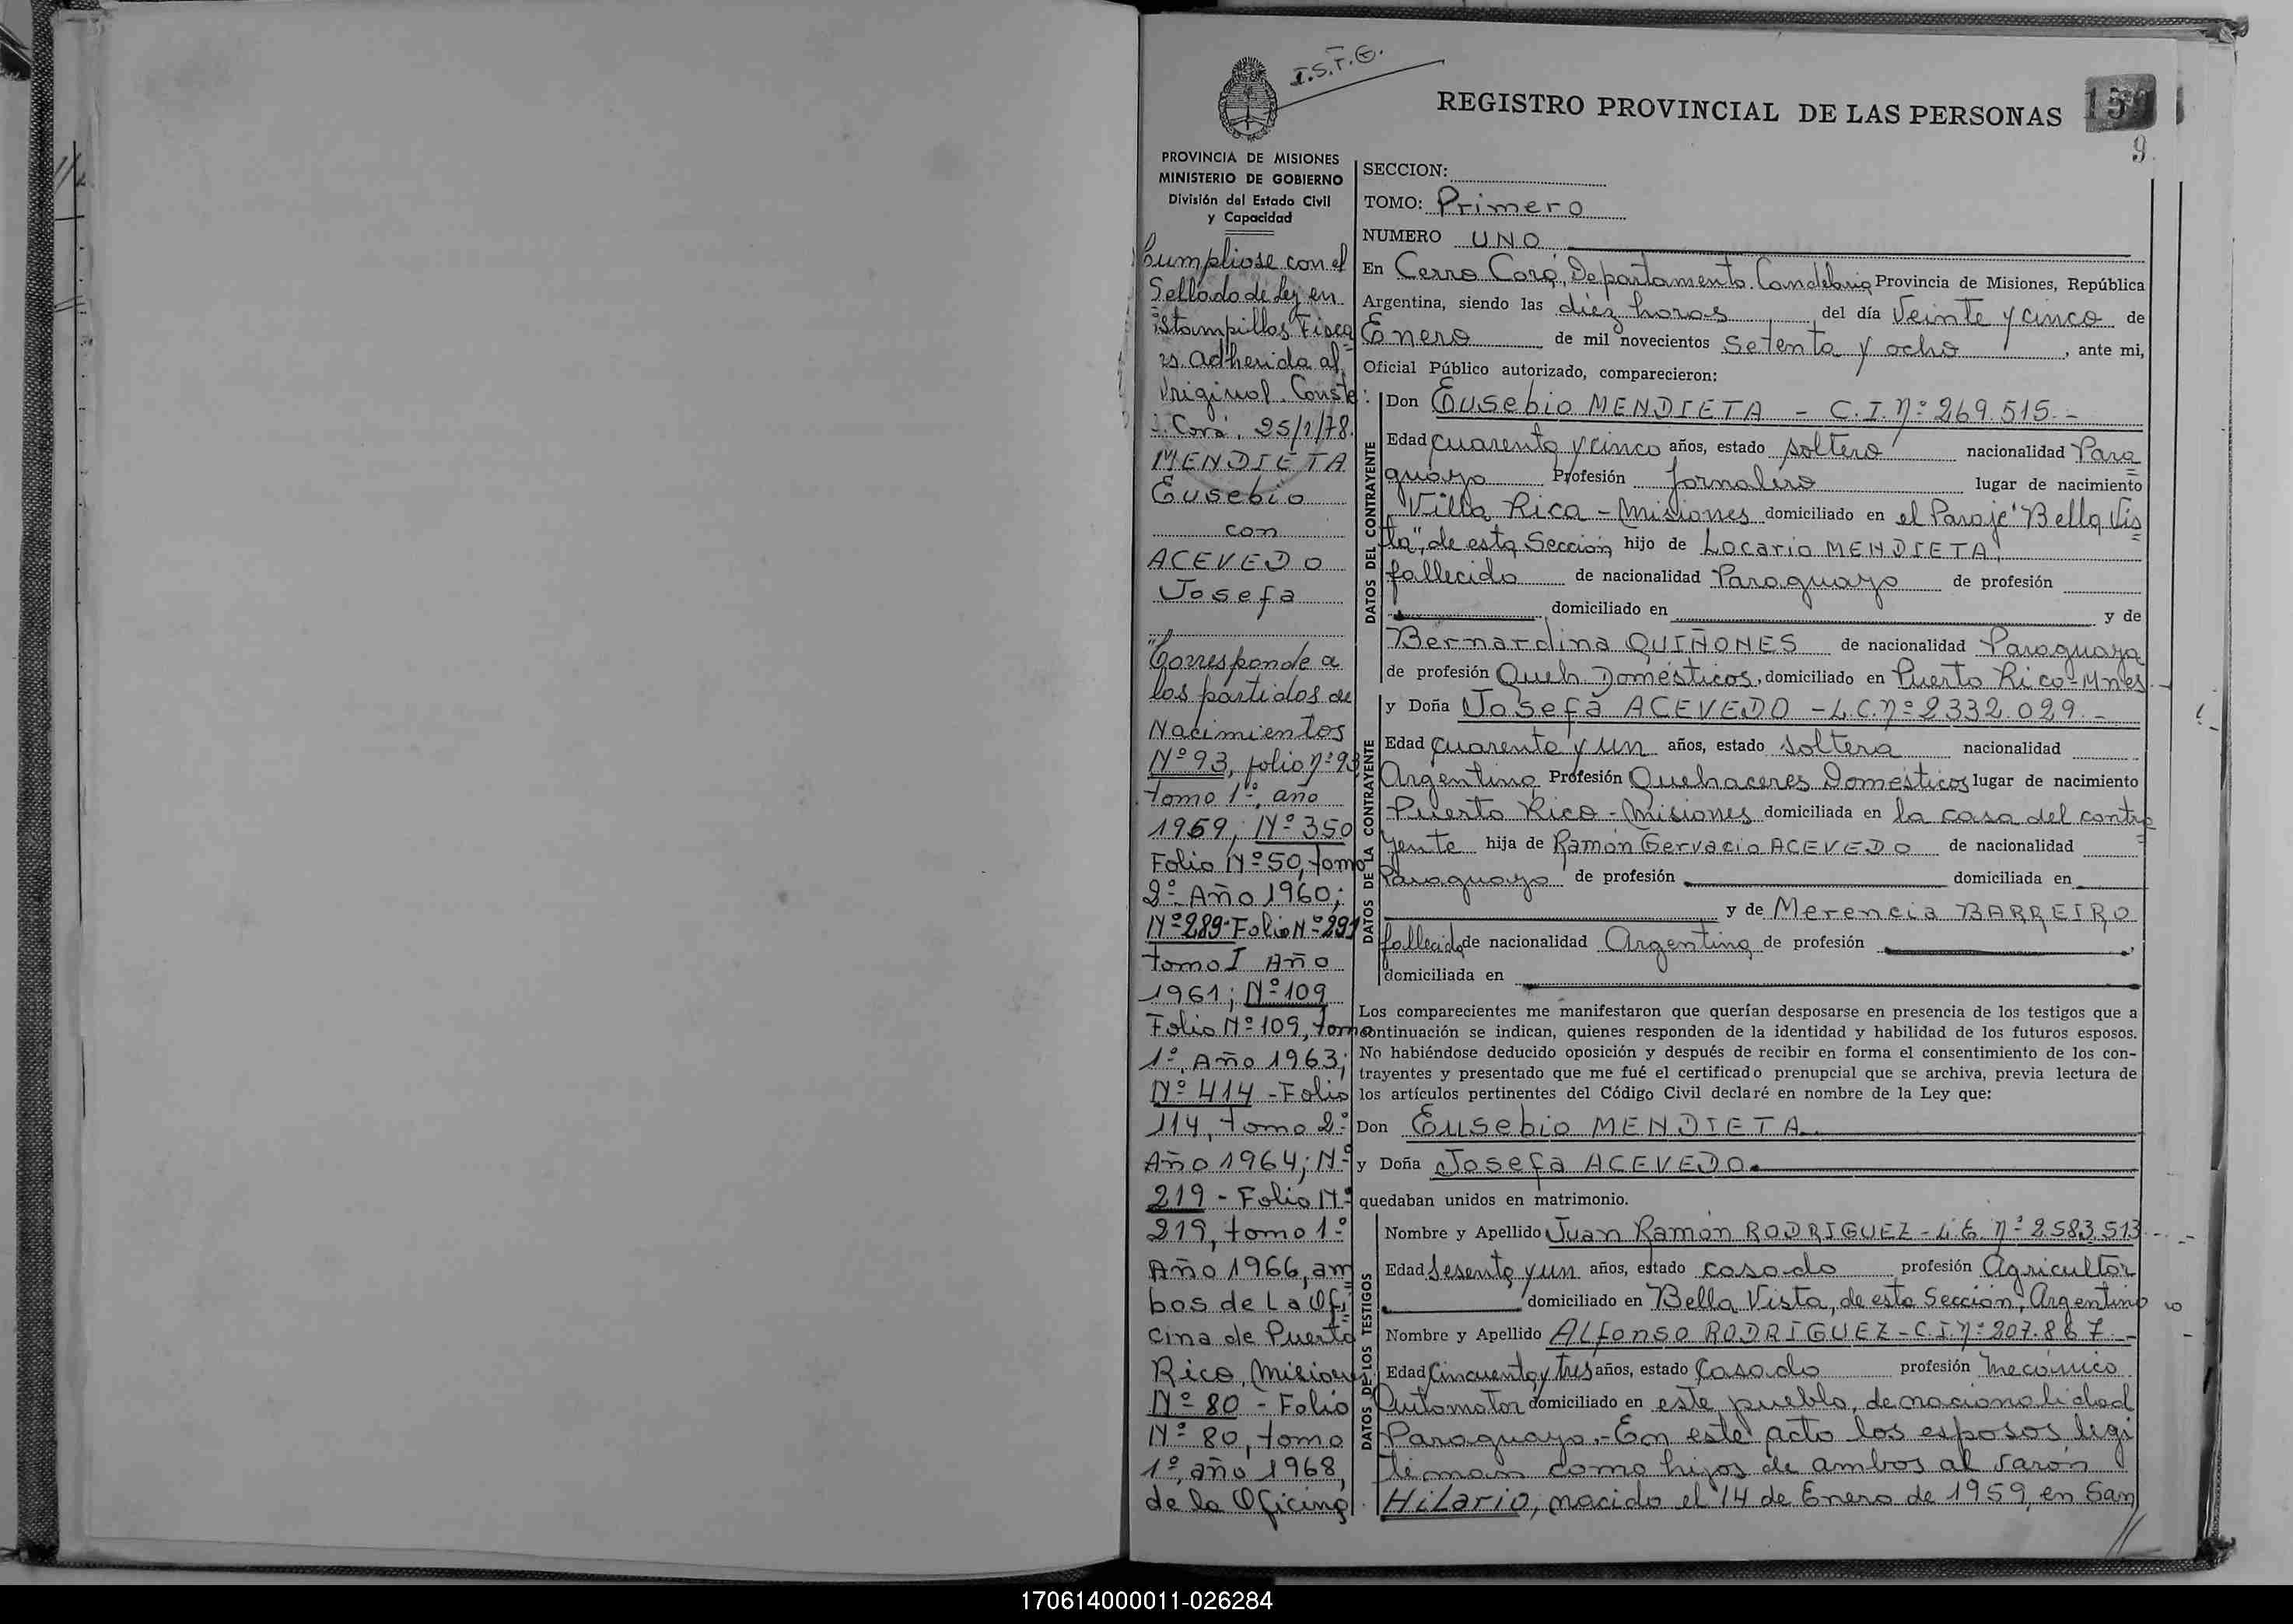 I.S.T.G.
REGISTRO PROVINCIAL DE LAS PERSONAS
15
9.
PROVINCIA DE MISIONES
MINISTERIO DE GOBIERNO
División del Estado Civil
y Capacidad
Cumpliose con el
Sellado de Ley en
Estampillas Fisca
es adherida al
Original. Conste
C. Corá, 25/1/78.
MENDIETA
Eusebio
con
ACEVEDO
Josefa
"Corresponde a
los partidos de
Nacimientos
Nº 93, folio nº 93
tomo 1º, año
1959; Nº 350
Folio Nº 50, tomo
2º Año 1960;
Nº 289-Folio Nº 291
tomo I Año
1961; Nº 109
Folio Nº 109, tomo
1º, Año 1963;
Nº 414 - Folio
114, tomo 2º
Año 1964; Nº
219 - Folio Nº
219, tomo 1º
Año 1966, am
bos de La Ofi
cina de Puerto
Rico, Misiones
Nº 80 - Folio
Nº 80, tomo
1º, año 1968,
de la Oficina
SECCION:
TOMO: Primero
NUMERO UNO
En Cerro Corá, Departamento Candelaria Provincia de Misiones, República
Argentina, siendo las diez horas del día Veinte y cinco de
Enero de mil novecientos setenta y ocho, ante mi,
Oficial Público autorizado, comparecieron:
DATOS DEL CONTRAYENTE
Don Eusebio MENDIETA - C.I. nº 269.515.-
Edad cuarenta y cinco años, estado soltero nacionalidad Para
guayo Profesión Jornalero lugar de nacimiento
Villa Rica - Misiones domiciliado en el Paraje "Bella Vis
ta", de esta Sección hijo de Locario MENDIETA,
fallecido de nacionalidad Paraguayo de profesión
domiciliado en y de
Bernardina QUIÑONES de nacionalidad Paraguaya
de profesión Queh Domésticos, domiciliado en Puerto Rico-Mnes.
DATOS DE LA CONTRAYENTE
y Doña Josefa ACEVEDO - L.C. nº 2332.029.-
Edad cuarenta y un años, estado soltera nacionalidad
Argentina Profesión Quehaceres Domésticos lugar de nacimiento
Puerto Rico - Misiones domiciliada en la casa del contra
yente hija de Ramón Gervacio ACEVEDO de nacionalidad
Paraguayo de profesión domiciliada en
y de Merencia BARREIRO
fallecida de nacionalidad Argentina de profesión
domiciliada en
Los comparecientes me manifestaron que querían desposarse en presencia de los testigos que a
continuación se indican, quienes responden de la identidad y habilidad de los futuros esposos.
No habiéndose deducido oposición y después de recibir en forma el consentimiento de los con-
trayentes y presentado que me fué el certificado prenupcial que se archiva, previa lectura de
los artículos pertinentes del Código Civil declaré en nombre de la Ley que:
Don Eusebio MENDIETA.
y Doña Josefa ACEVEDO.
quedaban unidos en matrimonio.
DATOS DE LOS TESTIGOS
Nombre y Apellido Juan Ramón RODRIGUEZ - L.E. nº 2.583.513
Edad Sesenta y un años, estado casado profesión Agricultor
domiciliado en Bella Vista, de esta Sección, Argentino
Nombre y Apellido Alfonso RODRIGUEZ - C.I. nº 207.867.-
Edad Cincuenta y tres años, estado Casado profesión Mecánico
Automotor domiciliado en este pueblo, de nacionalidad
Paraguayo.- En este acto los esposos legi
timan como hijos de ambos al varón
Hilario, nacido el 14 de Enero de 1959, en San
170614000011-026284